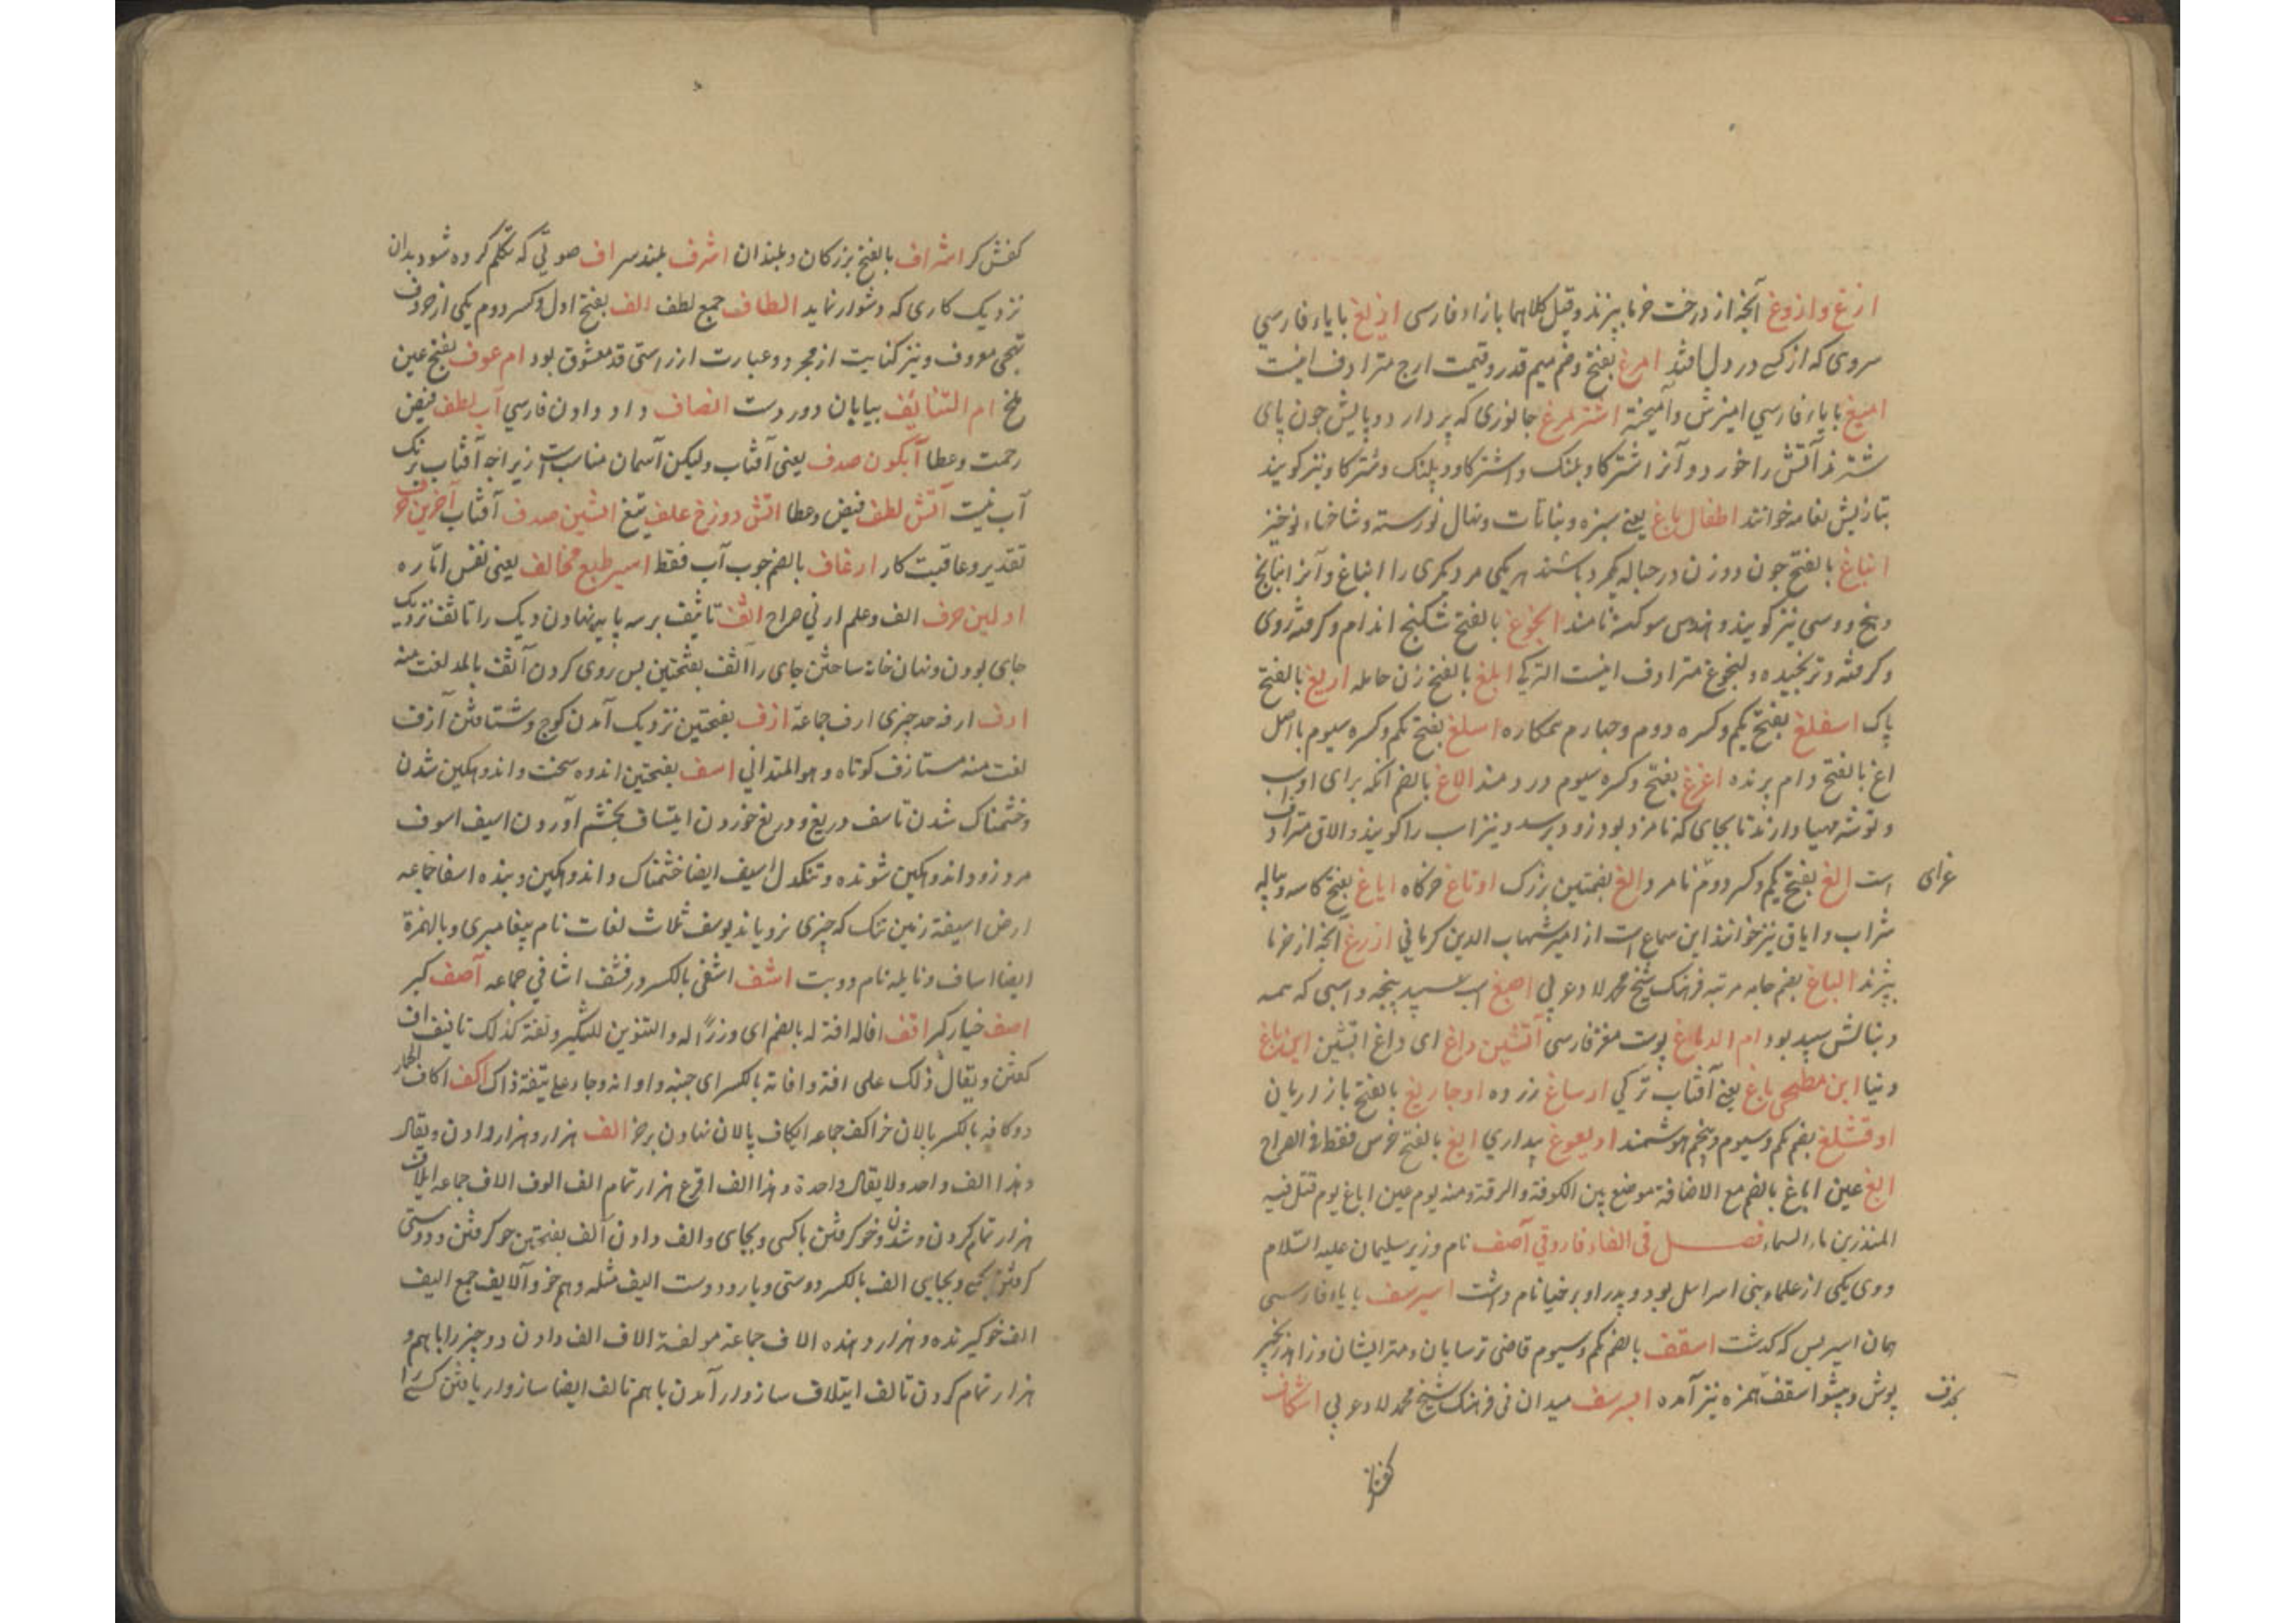 ازغ و ازوغ آنچه از درخت خرما ببرند و قیل کلاهما بازاء فارسی ازیغ با یاء فارسی
سروی که از کسی در دل افتد امرغ بفتح و ضم میم قدر و قیمت ارج مترادف اینست
امیغ با یاء فارسی امیزش و آمیخته اشترمرغ جانوری که پر دارد و پایش چون پای
شتر ند آتش را خورد و آنرا اشترکا و پلنک و اشترکاو و پلنک و شترکاو نیز کویند
بتازیش نعامه خوانند اطفال باغ یعنی سبزه و نباتات و نهال نورسته و شاخهاء نوخیز
انباغ بالفتح چون دو زن در حباله یکمرد باشند هر یکی مر دیکری را انباغ و آنرا انبانج
و بنج و وسی نیز کویند و اهندس سوکن نامند انجوغ بالفتح شکنج اندام و کرفته روی
و کرفته و ترنجیده و لنجوغ مترادف اینست الترکی ابلغ بالفتح زن حامله اریغ بالفتح
پاک اسفلغ بفتح یکم و کسره دوم و چهارم ستمکاره اسلغ بفتح یکم و کسره سیوم با اصل
اغ بالفتح دام پرنده اغرغ بفتح و کسره سیوم دردمند الاغ بالضم آنکه برای او اسب
و توشه مهیا دارند تا بجای که نامزد بود زود برسد و نیز اسب را کویند و الاق مترادف
است الغ بفتح یکم و کسر دوم نامرد و الغ بضمتین بزرک اوتاغ خرکاه ایاغ بفتح کاسه و پیاله
غرای
شراب و ایاق نیز خوانند این سماع است از امیر شهاب الدین کرمانی ازرغ آنچه از خرما
ببرند الباغ بضم جامه مرتبه فرهنک شیخ محمد لاد عربی اصبغ اسب سپید پنجه و اسبی که همه
دنبالش سپید بود ام الدماغ پوست مغز فارسی آتشین داغ ای داغ اتشین این باغ
دنیا این مطبخی باغ یعنی آفتاب ترکی ارساغ زر ده اوجاریغ بالفتح بازاریان
اوقشلغ بضم یکم و سیوم و پنجم هوشمند اویغوغ بیداری ایغ بالفتح خرس فقط فی الصراح
ابغ عین اباغ بالضم مع الاضافة موضع بین الکوفة والرقة ومنه یوم عین اباغ یوم قتل فیه
المنذر بن ماء السماء فصل فی الفاء فاروقی آصف نام وزیر سلیمان علیه السلام
و وی یکی از علماء بنی اسرائیل بود و پدر او برخیا نام داشت اسپرسف با یاء فارسی
همان اسپریس که کذشت اسقف بالضم یکم و سیوم قاضی ترسایان و مهتر ایشان و زاهد زنجیر
پوش و پیشوا سقف همزه نیز آمده اسپرسف میدان فی فرهنک شیخ محمد لاد عربی اسکاف
بحذف
کفش کر
کفش کر اشراف بالفتح بزرکان و بلندان اشرف بلندسر اف صوتی که تکلم کرده شود بدان
نزدیک کاری که دشوار نماید الطاف جمع لطف الف بفتح اول و کسر دوم یکی از حروف
تهجی معروف و نیز کنایت از مجرد و عبارت از راستی قد معشوق بود ام عوف بفتح عین
ملخ ام التنائف بیابان دوردست انصاف داد دادن فارسی آب لطف فیض
رحمت و عطا آبکون صدف یعنی آفتاب ولیکن آسمان مناسب است زیراچه آفتاب برنک
آب نیست آتش لطف فیض و عطا اتش دوزخ علف تیغ اتشین صدف آفتاب آخرین حرف
تقدیر و عاقبت کار ارغاف بالضم جوب آب فقط اسیر طبع مخالف یعنی نفس اماره
اولین حرف الف و علم ازلی صراح اثف تاثیف بر سه پایه نهادن دیک را تاثف نزدیک
جای بودن و نهان خانه ساختن جای را اثف بفتحتین پس روی کردن آثف بالمد لغت منه
ارف ارفه حد چیزی ارف جماعة ازف بفتحتین نزدیک آمدن کوچ و شتافتن آزف
لغت منه متازف کوتاه و هو المتدانی اسف بفتحتین اندوه سخت و اندوهکین شدن
و خشمناک شدن تاسف دریغ و دریغ خوردن ایتساف بخشم آوردن اسیف اسوف
مرد زود اندوهکین شونده و تنکدل اسیف ایضا خشمناک و اندوهکین و بنده اسفا جماعه
ارض اسیفة زمین تنک که چیزی نرویاند یوسف ثلاث لغات نام پیغامبری و بالهمزة
ایضا اساف و نایله نام دو بت اشف اشفی بالکسر درفشف اشافی جماعه آصف کبر
اصف خیار کبر افف افاله افة له بالضم ای وزرا له و التنوین للتنکیر و تفة کذلک تافیف اف
کفتن و یقال ذلک علی افة و افانه بالکسر ای حینه و اوانه و جاء علی تیفة ذاک اکف اکاف الحمار
دوکافه بالکسر پالان خر اکف جماعه ایکاف پالان نهادن بر خر الف هزار و هزار دادن و یقال
هذا الف واحد ولا یقال واحدة و هذا الف اقرع هزار تمام الف الوف الاف جماعه ایلاف
هزار تمام کردن و شدن و خوکرفتن باکسی و بجای و الف دادن آلف بفتحتین خوکرفتن و دوستی
کرفتن بکسی و بجایی الف بالکسر دوستی و یار و دوست الیف مثله و هم خو و آلایف جمع الیف
الف خوکیرنده و هزار دهنده الاف جماعة مولفة الاف الف دادن دو چیز را باهم و
هزار تمام کردن تالف ایتلاف سازوار آمدن باهم تالف ایضا سازوار یافتن کسی را